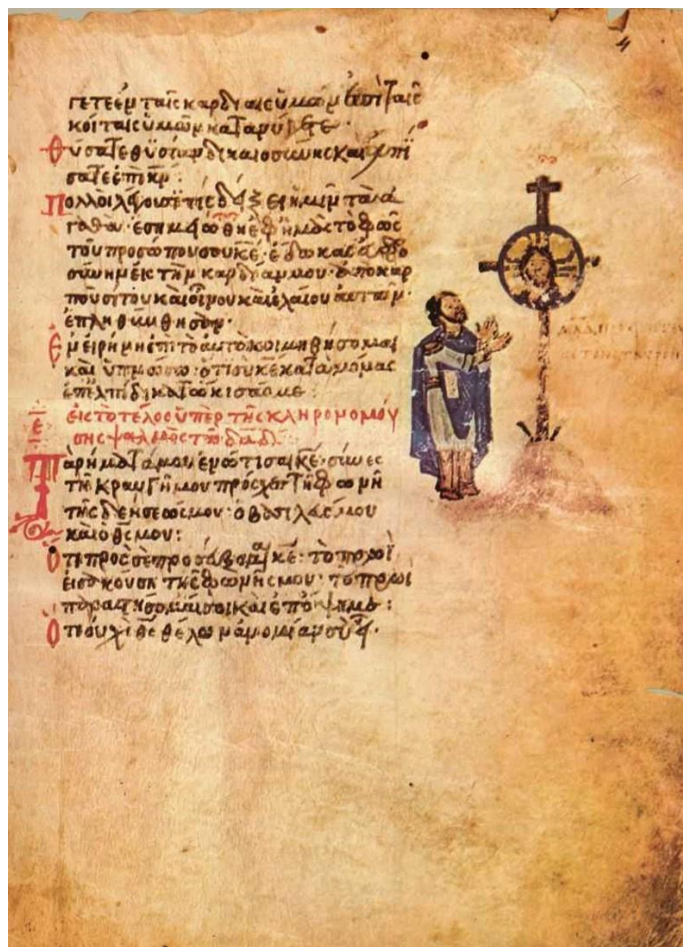 γετε ἐν ταῖς καρδίαις ὑμῶν ἐπὶ ταῖς
κοίταις ὑμῶν κατανύγητε·
Θύσατε θυσίαν δικαιοσύνης καὶ ἐλπί
σατε ἐπὶ κν̄:
Πολλοὶ λέγουσιν τίς δείξει ἡμῖν τὰ ἀ
γαθά· ἐσημειώθη ἐφ ἡμᾶς τὸ φῶς
τοῦ προσώπου σου κε̄· ἔδωκας εὐφρο
σύνην εἰς τὴν καρδίαν μου· ἀπὸ καρ
ποῦ σίτου καὶ οἴνου καὶ ἐλαίου αὐτῶν·
ἐπληθύνθησαν·
Ἐν εἰρήνη ἐπὶ τὸ αὐτὸ κοιμηθήσομαι
καὶ ὑπνώσω· ὅτι σὺ κε̄ κατὰ μόνας
ἐπ ἐλπίδι κατώκισάς με:
Ε εἰς τὸ τέλος ὑπὲρ τῆς κληρονομού
σης ψαλμὸς τῶ δᾱδ:
Τὰ ρήματά μου ἐνώτισαι κε̄· σύνες
τῆς κραυγῆς μου πρόσχες τῆ φωνῆ
τῆς δεήσεώς μου· ὁ βασιλεύς μου
καὶ ὁ θς̄ μου:
Ὅτι πρὸς σὲ προσεύξομαι κε̄· τὸ πρωῒ
εἰσακούση τῆς φωνῆς μου· τὸ πρωῒ
παραστήσομαί σοι καὶ ἐπόψομαι:
Ὅτι οὐχὶ θς̄ θέλων ἀνομίαν σὺ εἶ·